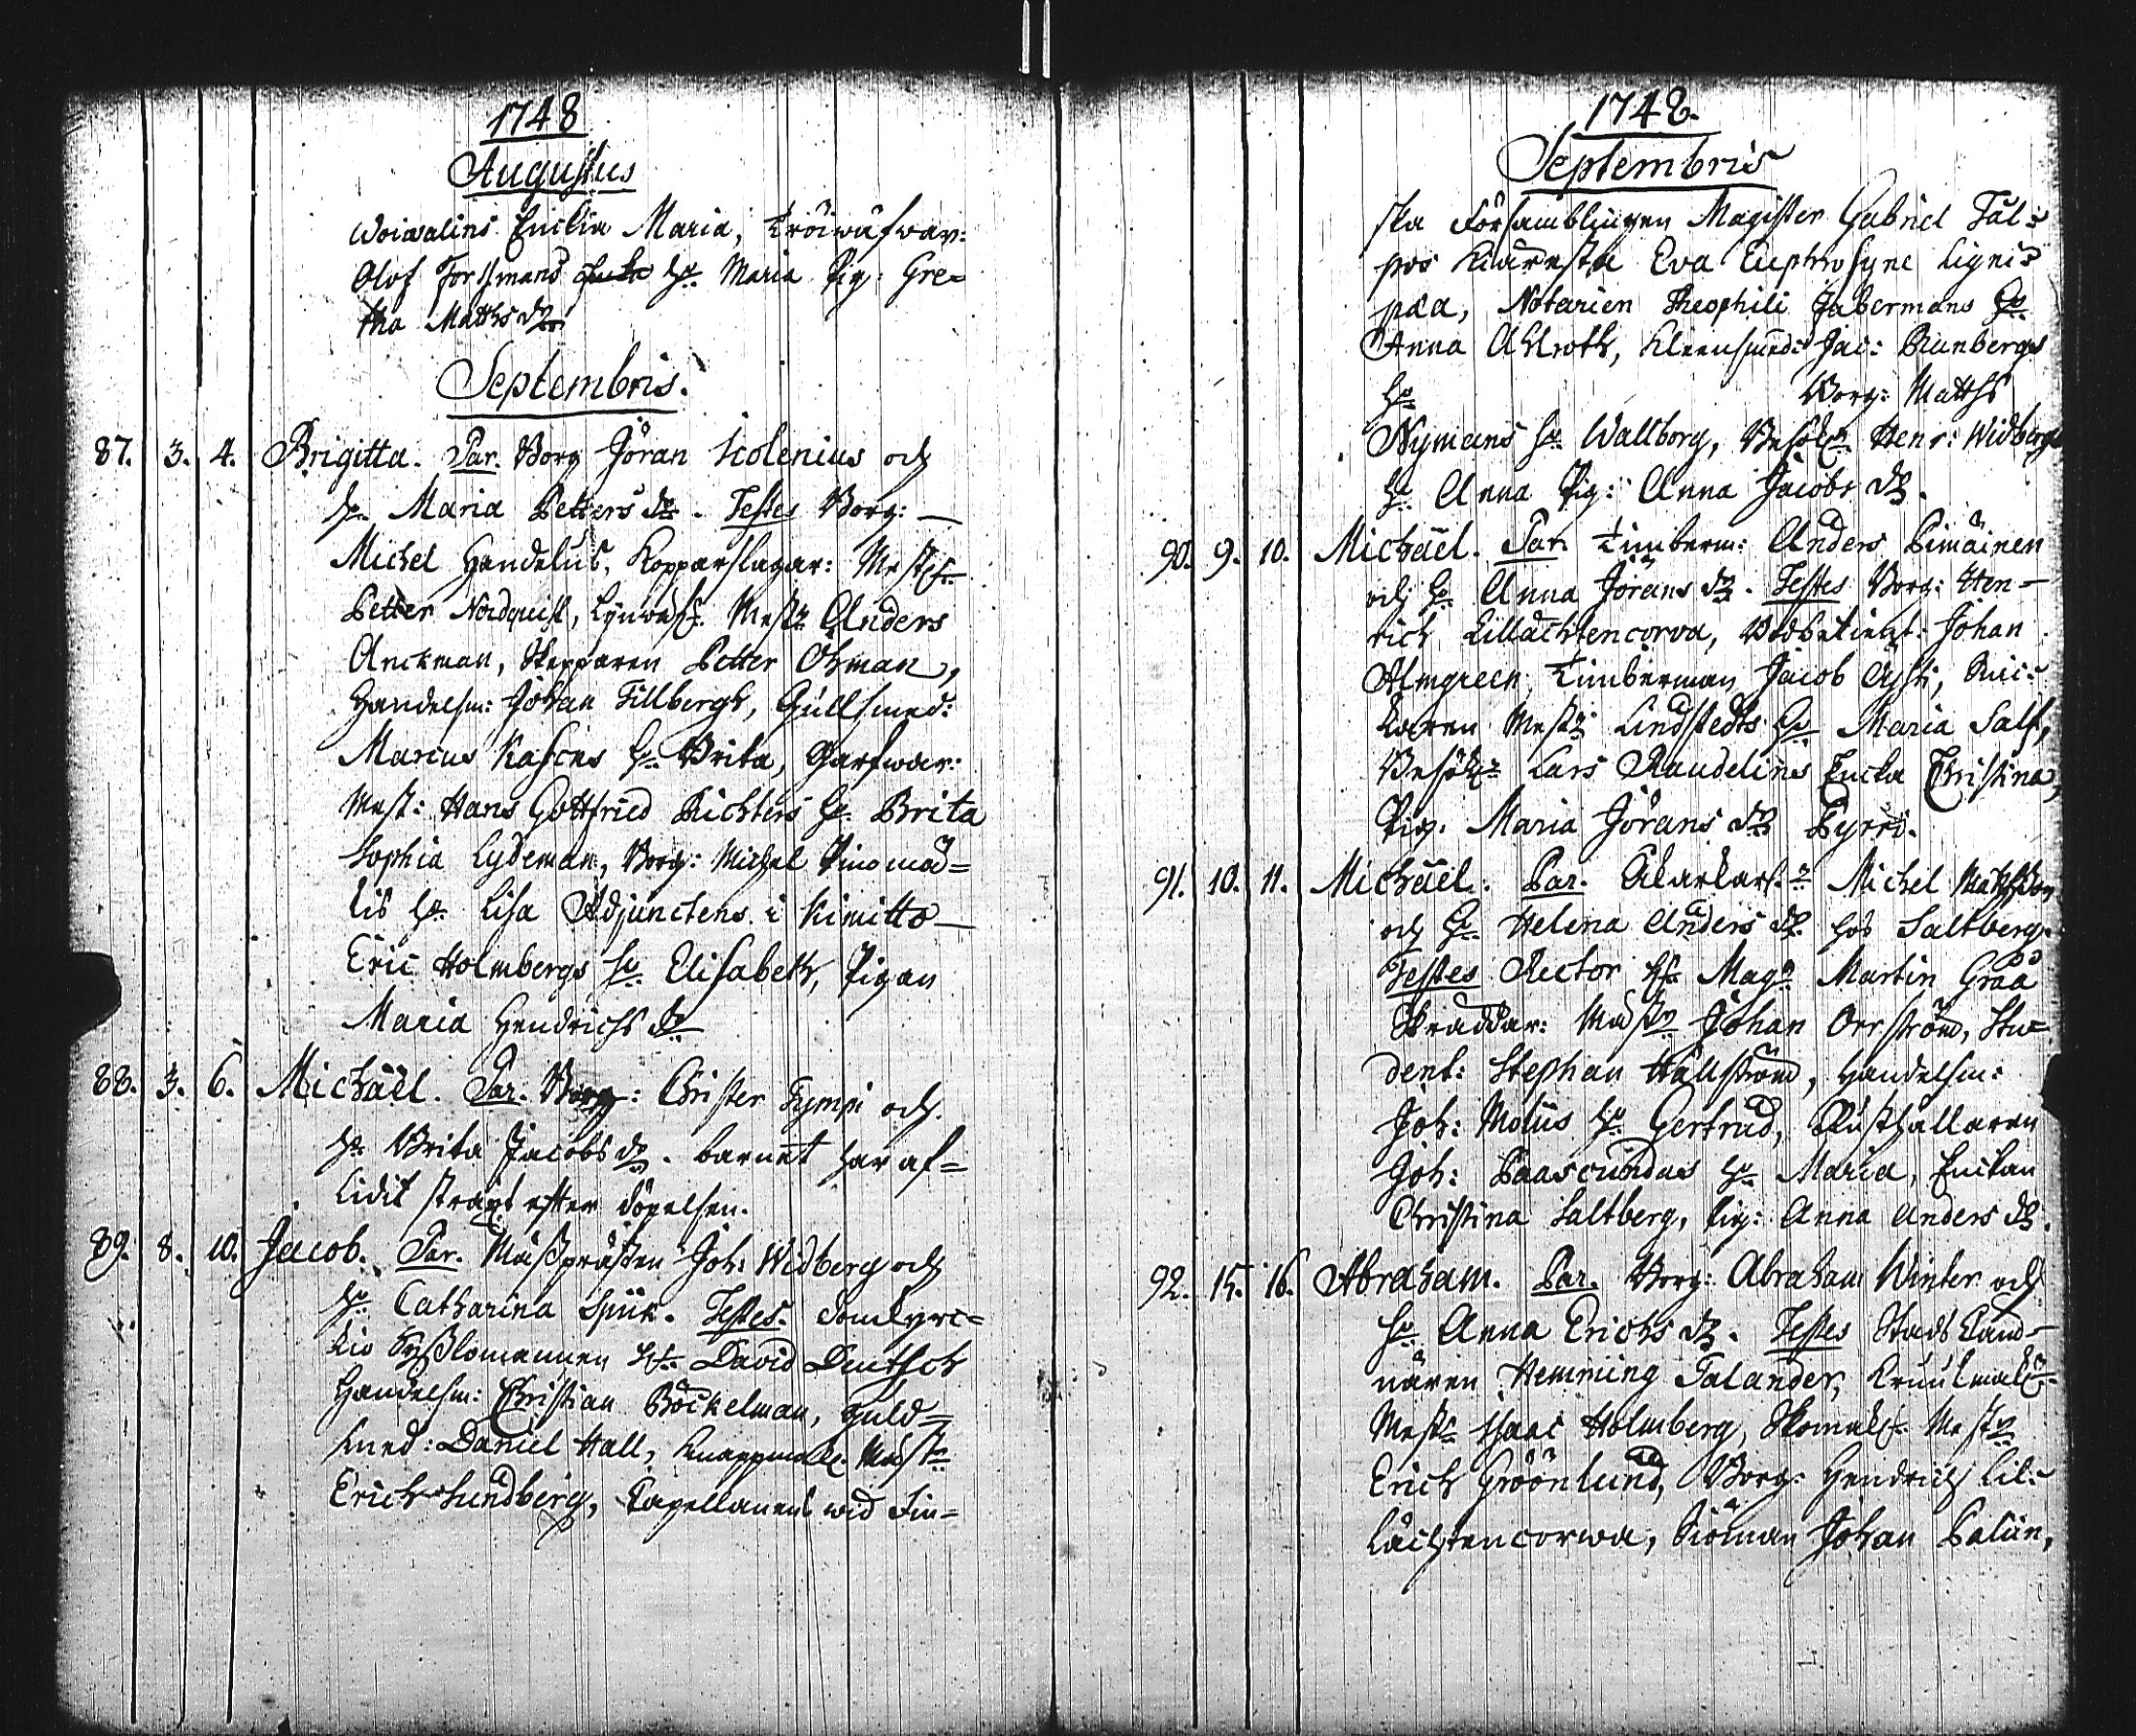 1748
Augustus
Woivalins Enckia Maria, Tröiwäfvar:
Olof Forsmans h:u Maria Pig: Gre=
tha Matths d:r
Septembris.
87. 3. 4. Brigitta. Par. Borg Jöran Scolenius och
h:u Maria Petters d:r. Testes Borg: —
Michel Handelus, Kopparslagar: Mest:
Petter Nordquist, Mest:r Anders
Anckman, Skepparen Petter Öhman,
Handelsm: Johan Tillbergh, Gullsmed:
Marcus Kascns h:u Brita, Garfwar:
Mest: Hans Gottfried Richters h:u Brita
Sophia Lydeman, Borg: Michel
h:u Lisa Adjunctens i Kimitto —
Eric Holmbergs h:u Elisabeth, Pigan
Maria Hendrichs d:r
88. 3. 6. Michaël. Par. Borg: Christer Sympi och
h:u Brita Jacobs d:r. barnet har af=
lidit straxt efter döpelsen.
89. 8. 10. Jacob. Par. Mässprästen Joh: Widberg och
h:u Catharina Spiik. Testes. Domkyrc=
kio Sysslomannen H:r David Deutsch
Handelsm: Christian Böckelman, Guld=
smed: Daniel Hall, Knappmak: Mäst:r
Erich Sundberg, Capellanens wid Fin=
1748.
Septembris
ska Församblingen Magister Gabriel Tal=
pos Kiäresta Eva Euphrosyne Ligni=
paa, Notarien Theophili Habermans h:u
Anna Ahlroth, Kleensmed: Jac: Runbergs
h:u Borg: Matths
Nymans h:u Wallborg, Besök:r Henr: Widbergs
h:u Anna Pig: Anna Jacobs d:r.
90. 9. 10. Michaël. Par. Timberm: Anders Pimäinen
och h:u Anna Jörans d:r. Testes Borg: Hen—
rich Lillächtencorva, Johan
Almgreen, Timberman Jacob
karen Mest:r Lindstedts h:u Maria Salt,
Besök:r Lars Raudelins Encka Christina,
Pig. Maria Jörans d:r Pyrri.
91. 10. 11. Michaël. Par. Åkarkarl:n Michel Mathsson
och h:u Helena Anders d:r hos Saltberg.
Testes Rector H:r Mag:r Martin Graa
Skräddar: Mäst:r Johan Orrström, Stu=
dent: Stephan Hällström, Handelsm:
Joh: Molius h:u Gertrud, Rusthållaren
Joh: Paascundas h:u Maria, Enckan
Christina Saltberg, Pig: Anna Anders d:r.
92. 15. 16. Abraham. Par. Borg: Abraham Winter och
h:u Anna Erichs d:r. Testes Stads Camb—
nären Hemming Falander, Kruukmak:
Mest:r Isaac Holmberg, Skomak: Mest:r
Erich Gröönlund, Borg: Hendrich Lil=
lächtencorwa, Siöman Johan Palun,